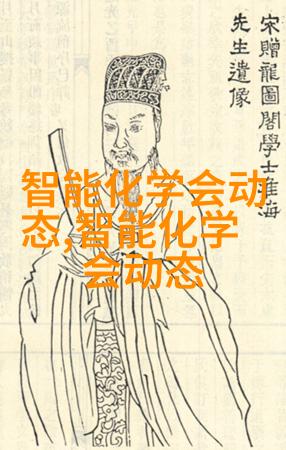 宋贈龍圖閣學士淮海
先生遺像
智能化学会动
态,智能化学
会动态